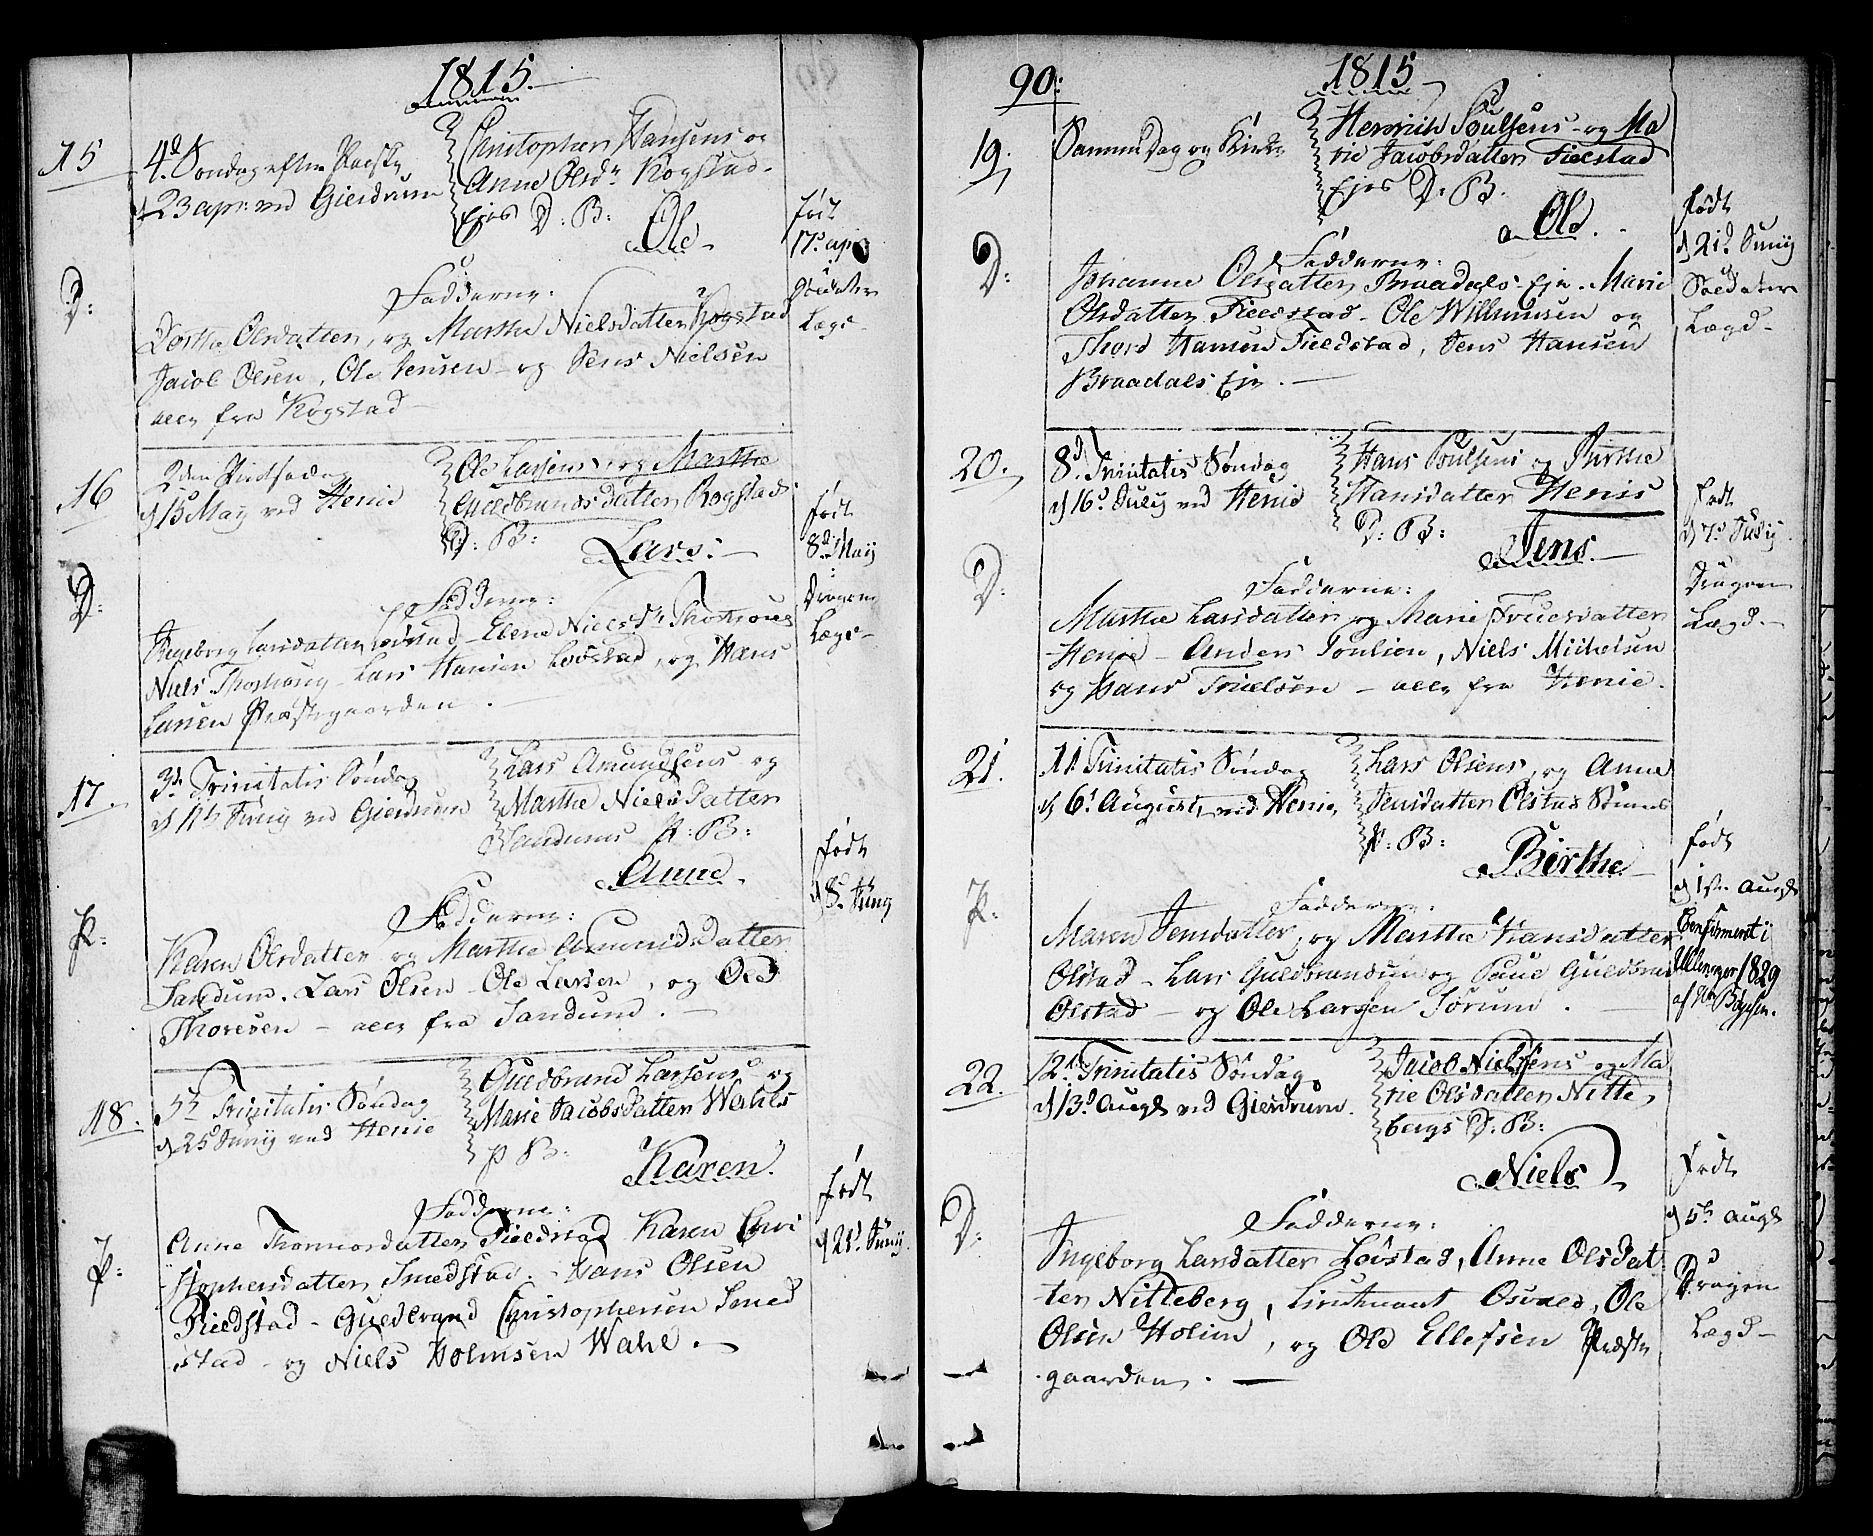 1815.
15
4d Søndag efter Paaske
d 23 apr: ved Gierdrum
Christopher Hansens og
Anne Olsdr Kogstad
Ejes D: B:
Ole
født
17d apr
Soldater
Lægd
D:
Fadderne:
Dorthe Olsdatter, og Marthe Nielsdatter Kogstad
Jacob Olsen, Ole Jensen og Jens Nielsen
alle fra Kogstad
16
2den Pintsedag
d 15 Maij ved Henie
Ole Larsens, og Marthe
Guldbrandsdatter Rogstads
D: B:
Lars:
født
8d Maij
Dragon
Lægd
D:
Fadderne:
Ingeborg Larsdatter Løvstad - Nielsdr
Niels - Lars Hansen Løvstad, og Hans
Larsen Præstegaarden.
17
3de Trinitatis Søndag
d 11d Junij ved Gierdrum
Lars Amundsens og
Marthe Nielsdatter
Sandums P: B:
Anne
født
d 8d Junij
P:
Fadderne:
Karen Olsdatter og Marthe Amundsdatter
Sandum. Lars Olsen - Ole Larsen, og Ole
Thoresen - alle fra Sandum.
18.
5te Trinitatis Søndag
d 25d Junij ved Henie
Guldbrand Larsens og
Marie Jacobsdatter Wahls
P B:
Karen
født
d 21d Junij
P:
Fadderne:
Anne Thommosdatter Fieldstad Karen Chri
stophersdatter Smedstad. Hans Olsen
Fieldstad - Guldbrand Christophersen Smed
stad - og Niels Holmsen Wahl.
90:
1815
19.
Samme Dag og Kirke
Henrich Poulsens og Ma
rie Jacobsdatter Fielstad
Ejes D: B.
Ole.
født
d 21d Junij
Soldater
Lægd
D:
Fadderne:
Johanne Olsdatter Braadals Eje. Marie
Olsdatter Fieldstad. Ole Willumsen og
Thord Hansen Fieldstad, Jens Hansen
Braadals Eje.
20.
8d Trinitatis Søndag
d 16d Julij ved Henie
Hans Poulsens og Birthe
Hansdatter Henie
D: B:
Jens
født
d 7d Julij
Dragon
Lægd
D:
Fadderne:
Marthe Larsdatter og Marie Truelsdatter
Henie - Anders Poulsen, Niels Michelsen
og Hans Truelsen - alle fra Henie.
21.
11 Trinitatis Søndag
d 6d August, ved Henie,
Lars Olsens, og Anne
Jensdatter Olstad
P: B:
Birthe
født
d 1ste Augt
Confirmeret i
Ullensager 1829
af
P:
Fadderne:
Maren Jensdatter, og Marthe Hansdatter
Olstad - Lars Guldbrandsen og Poul Guldbran
Olstad - og Ole Larsen Sørum.
22.
12d Trinitatis Søndag
d 13d Augt ved Gierdrum.
Jacob Nielsens og Ma
rie Olsdatter Nitte
bergs D: B:
Niels
født
d 5te Augt
Dragon
Lægd
D:
Fadderne:
Ingeborg Larsdatter Løvstad, Anne Olsdat
ter Nitteberg, Lieutnant Osvald, Ole
Olsen Holim, og Ole Ellefsen Præste
gaarden.